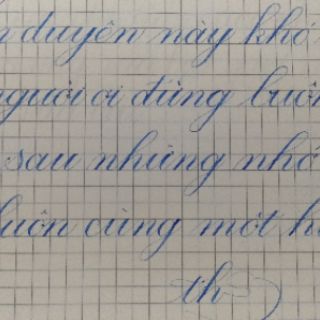 duyên này khó
người ơi đừng buôn
sau những nhớ
luôn cùng một h
th